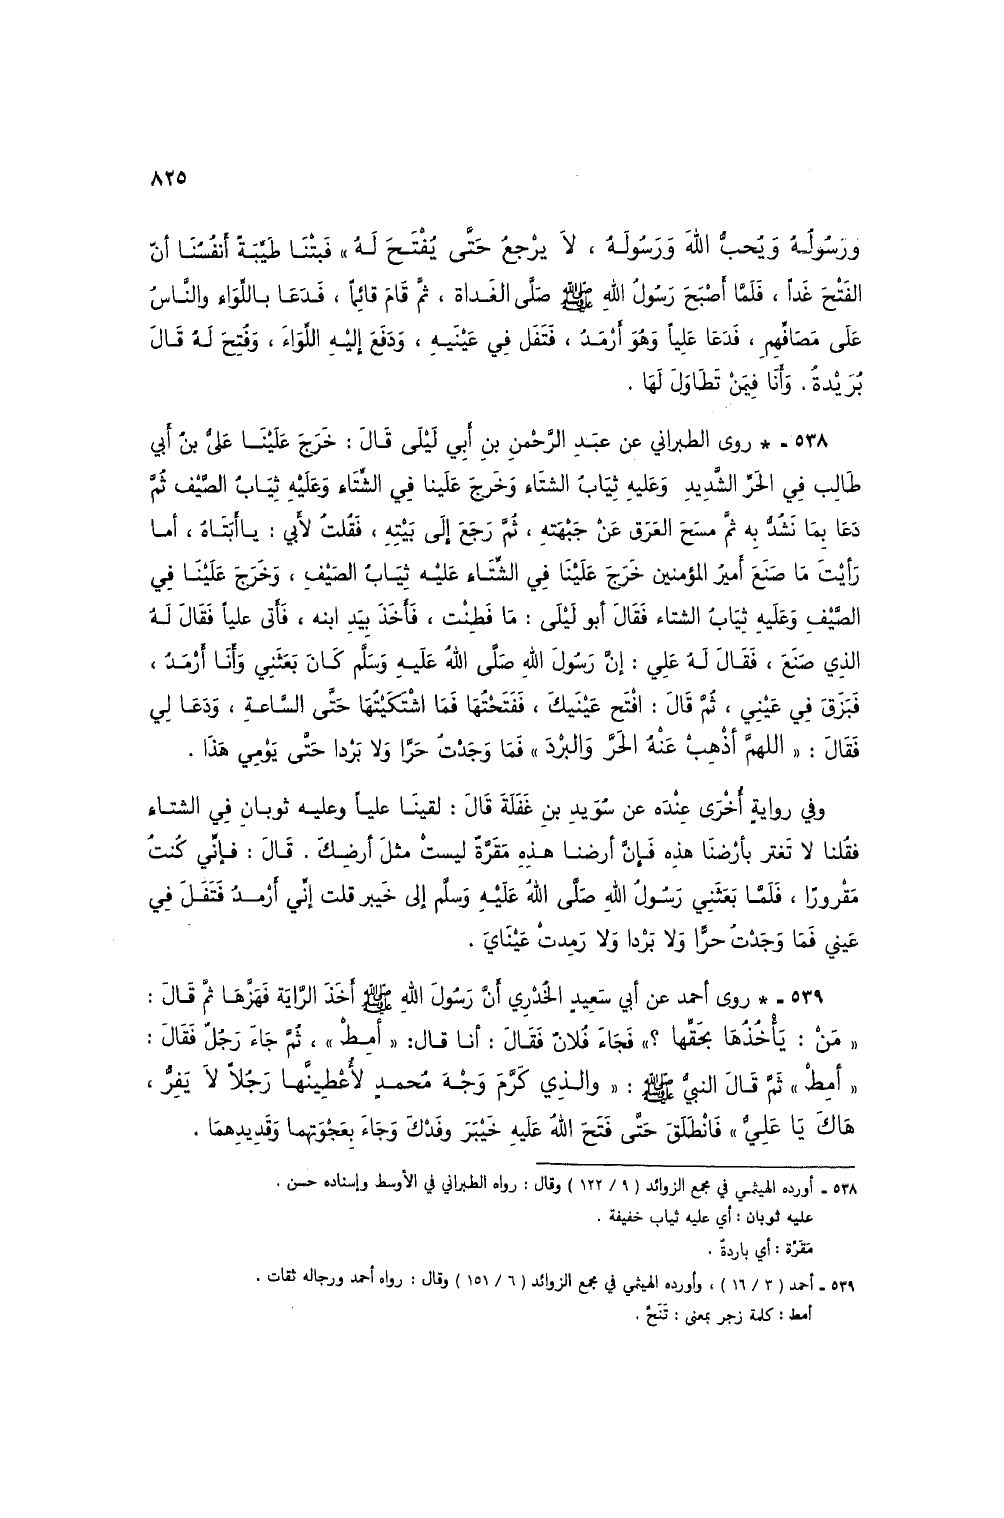 ٨٢٥
ورَسُولُهُ وَيُحبُّ اللهَ وَرَسُولَهُ ، لاَ يرْجِعُ حَتَّى يُفْتَحَ لَهُ » فَبِتْنَا طَيِّبَةً أَنفُسُنَا أنّ
الفَتْحَ غَداً ، فَلَمَّا أَصْبَحَ رَسُولُ اللهِ ﷺ صَلَّى الغَداة ، ثمَّ قَامَ قائِماً ، فَدَعَا باللِّوَاء والنَّاسُ
عَلَى مَصَافِّهِم ، فَدَعَا عَلِياً وَهُوَ أَرْمَدُ ، فَتَفَل فِي عَيْنَيهِ ، وَدَفَعَ إليْهِ اللِّوَاءَ ، وَفُتِحَ لَهُ قَالَ
بُرَيْدةُ . وَأَنَا فِيمَنْ تَطَاوَلَ لَهَا .
٥٣٨ - * روى الطبراني عن عبَدِ الرَّحْمنِ بنِ أَبِي لَيْلَى قَالَ : خَرَجَ عَلَيْنَا عَليُّ بنُ أَبي
طَالِب فِي الحَرِّ الشَّدِيدِ وَعَليهِ ثِيَابُ الشتَاء وَخَرجَ عَلَينا فِي الشِّتَاء وَعَلَيْهِ ثِيَابُ الصَّيْف ثُمَّ
دَعَا بِمَا نَشُدُّ به ثمَّ مسَحَ العَرَق عَنْ جَبْهَتهِ ، ثُمَّ رَجَعَ إلَى بَيْتِهِ ، فَقُلتُ لأبي : ياأبَتَاهُ ، أما
رَأيْتَ مَا صَنَعَ أَميرُ المؤمنين خَرَجَ عَلَيْنَا فِي الشِّتَاء عَلَيْه ثِيَابُ الصَيْفِ ، وَخَرَجَ عَلَيْنَا فِي
الصَّيْفِ وَعَلَيهِ ثِيَابُ الشتاء فَقَالَ أبو لَيْلَى : مَا فَطِنْت ، فَأخَذَ بيَدِ ابنه ، فَأتى علياً فَقَالَ لَهُ
الذي صَنَعَ ، فَقَالَ لَهُ عَلي : إنَّ رَسُولَ اللهِ صَلَّى اللهُ عَلَيهِ وَسَلَّم كَانَ بَعَثَنِي وَأَنَا أَرْمَدُ ،
فَبَزَقَ فِي عَيْنِي ، ثُمَّ قَالَ : افْتَح عَيْنَيكَ ، فَفَتَحْتُهَا فَمَا اشْتَكَيْتُهَا حَتَّى السَّاعةِ ، وَدَعَا لِي
فَقَالَ : « اللهمَّ أَذْهِبْ عَنْهُ الحَرَّ وَالبرْدَ » فَمَا وَجَدْتُ حَرًّا وَلا بَرْدا حَتَّى يَوْمِي هَذَا .
وفي روايةٍ أُخْرَى عِنْدَه عن سُوَيدِ بنِ غَفَلَةَ قَالَ : لقينَا علياً وعليه ثوبان فِي الشتاء
فقُلنا لا تَغتر بأرْضنَا هذِه فَإنَّ أرضنا هذِه مَقَرَّةٌ ليستْ مثلَ أرضِكَ . قَالَ : فإنِّي كُنتُ
مَقْرورًا ، فَلَمَّا بَعَثَنِي رَسُولُ اللهِ صَلَّى اللهُ عَلَيْهِ وَسَلَّم إلى خَيبر قلت إنِّي أَرْمدُ فَتَفَلَ فِي
عَينِي فَمَا وَجَدْتُ حرًّا وَلا بَرْدا وَلا رَمِدتْ عَيْنَايَ .
٥٣٩ - * روى أحمد عن أبي سَعِيدٍ الخُدْرِي أَنَّ رَسُولَ اللهِ ﷺ أَخَذَ الرَّايَة فَهَزَّهَا ثمَّ قَالَ :
« مَنْ : يَأْخُذُهَا بحَقِّها ؟» فَجَاءَ فُلانٌ فَقَالَ : أنا قال: « أَمِطْ » ، ثُمَّ جَاءَ رَجُلٌ فَقَالَ :
« أمِطْ » ثمَّ قَالَ النبيُّ ﷺ : « والذِي كَرَّمَ وَجْهَ مُحمدٍ لأُعْطِينَّها رَجُلاً لاَ يَفِرُّ ،
هَاكَ يَا عَلِيُّ » فَانْطَلَقَ حَتَّى فَتَحَ اللهُ عَلَيهِ خَيْبَرَ وفَدْكَ وَجَاءَ بِعَجْوَتِهما وَقَدِيدِهمَا .
٥٣٨ - أورده الهيثمي في مجمع الزوائد ( ٩ / ١٢٢ ) وقال : رواه الطبراني في الأوسط وإسناده حسن .
عليه ثوبان : أي عليه ثياب خفيفة .
مَقَرَّة : أي باردةٌ .
٥٣٩ - أحمد ( ٣ / ١٦ ) ، وأورده الهيثمي في مجمع الزوائد ( ٦ / ١٥١ ) وقال : رواه أحمد ورجاله ثقات .
أمط : كلمة زجر بمعنى : تَنَحَّ .